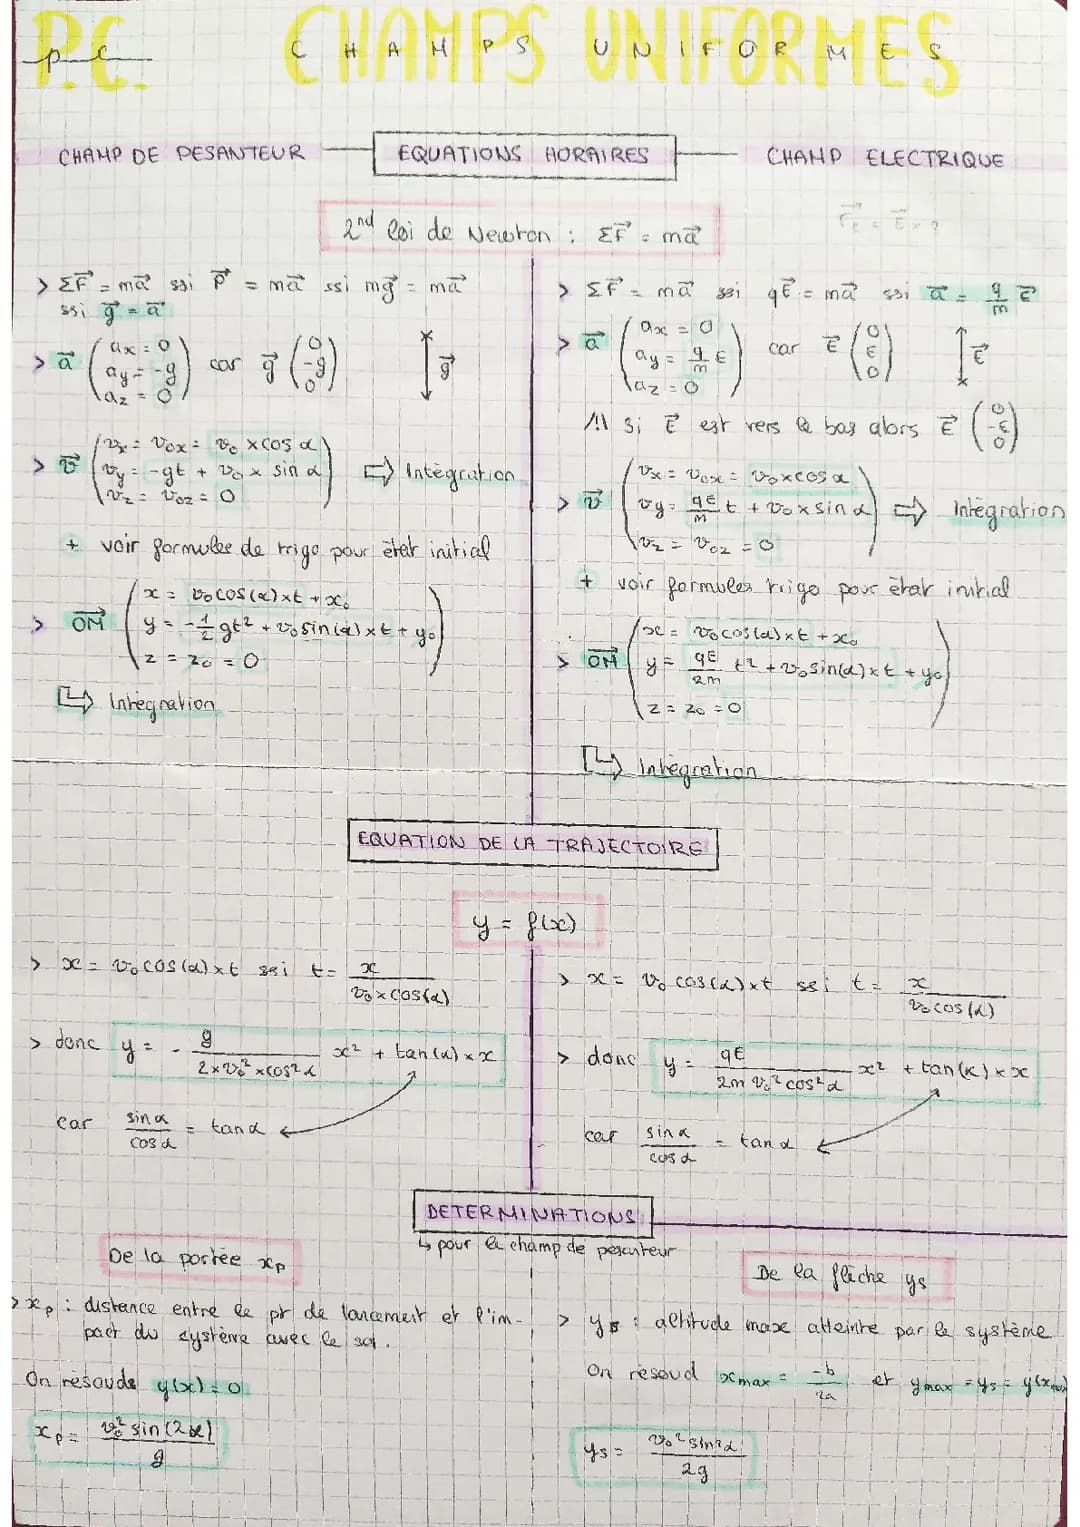 P.C. CHAMPS UNIFORMES
pc CHAMPS UNIFORMES
CHAMP DE PESANTEUR
EQUATIONS HORAIRES
CHAMP ELECTRIQUE
2nd loi de Newton : ΣF⃗ = ma⃗
> ΣF⃗ = ma⃗ ssi P⃗ = ma⃗ ssi mg⃗ = ma⃗
ssi g⃗ = a⃗
> a⃗ ( ax = 0
ay = -g
az = 0 ) car g⃗ ( 0
-g
0 ) g⃗
> v⃗ ( vx = v0x = v0 × cos α
vy = -gt + v0 × sin α
vz = v0z = 0 ) ⇨ Intégration
+ voir formules de trigo pour état initial
> OM⃗ ( x = v0 cos(α) × t + x0
y = -1/2 gt² + v0 sin(α) × t + y0
z = z0 = 0 )
↳ Intégration
> ΣF⃗ = ma⃗ ssi qE⃗ = ma⃗ ssi a⃗ = q/m E⃗
> a⃗ ( ax = 0
ay = q/m E
az = 0 ) car E⃗ ( 0
E
0 ) E⃗
/!\ si E⃗ est vers le bas alors E⃗ ( 0
-E
0 )
> v⃗ ( vx = v0x = v0 × cos α
vy = qE/m t + v0 × sin α
vz = v0z = 0 ) ⇨ Intégration
+ voir formules trigo pour état initial
> OM⃗ ( x = v0 cos(α) × t + x0
y = qE/2m t² + v0 sin(α) × t + y0
z = z0 = 0 )
↳ Intégration
EQUATION DE LA TRAJECTOIRE
y = f(x)
> x = v0 cos(α) × t ssi t = x / v0 × cos(α)
> donc y = - g / 2 × v0² × cos² α x² + tan(α) × x
car sin α / cos α = tan α
> x = v0 cos(α) × t ssi t = x / v0 cos(α)
> donc y = qE / 2m v0² cos² α x² + tan(α) × x
car sin α / cos α = tan α
DETERMINATIONS
↳ pour le champ de pesanteur
De la portée xp
> xp : distance entre le pt de lancement et l'im-
pact du système avec le sol.
On résouds y(x) = 0
xp = v0² sin(2α) / g
De la flèche ys
> ys : altitude max atteinte par le système
On résoud xmax = -b / 2a et ymax = ys = y(xmax)
ys = v0² sin² α / 2g